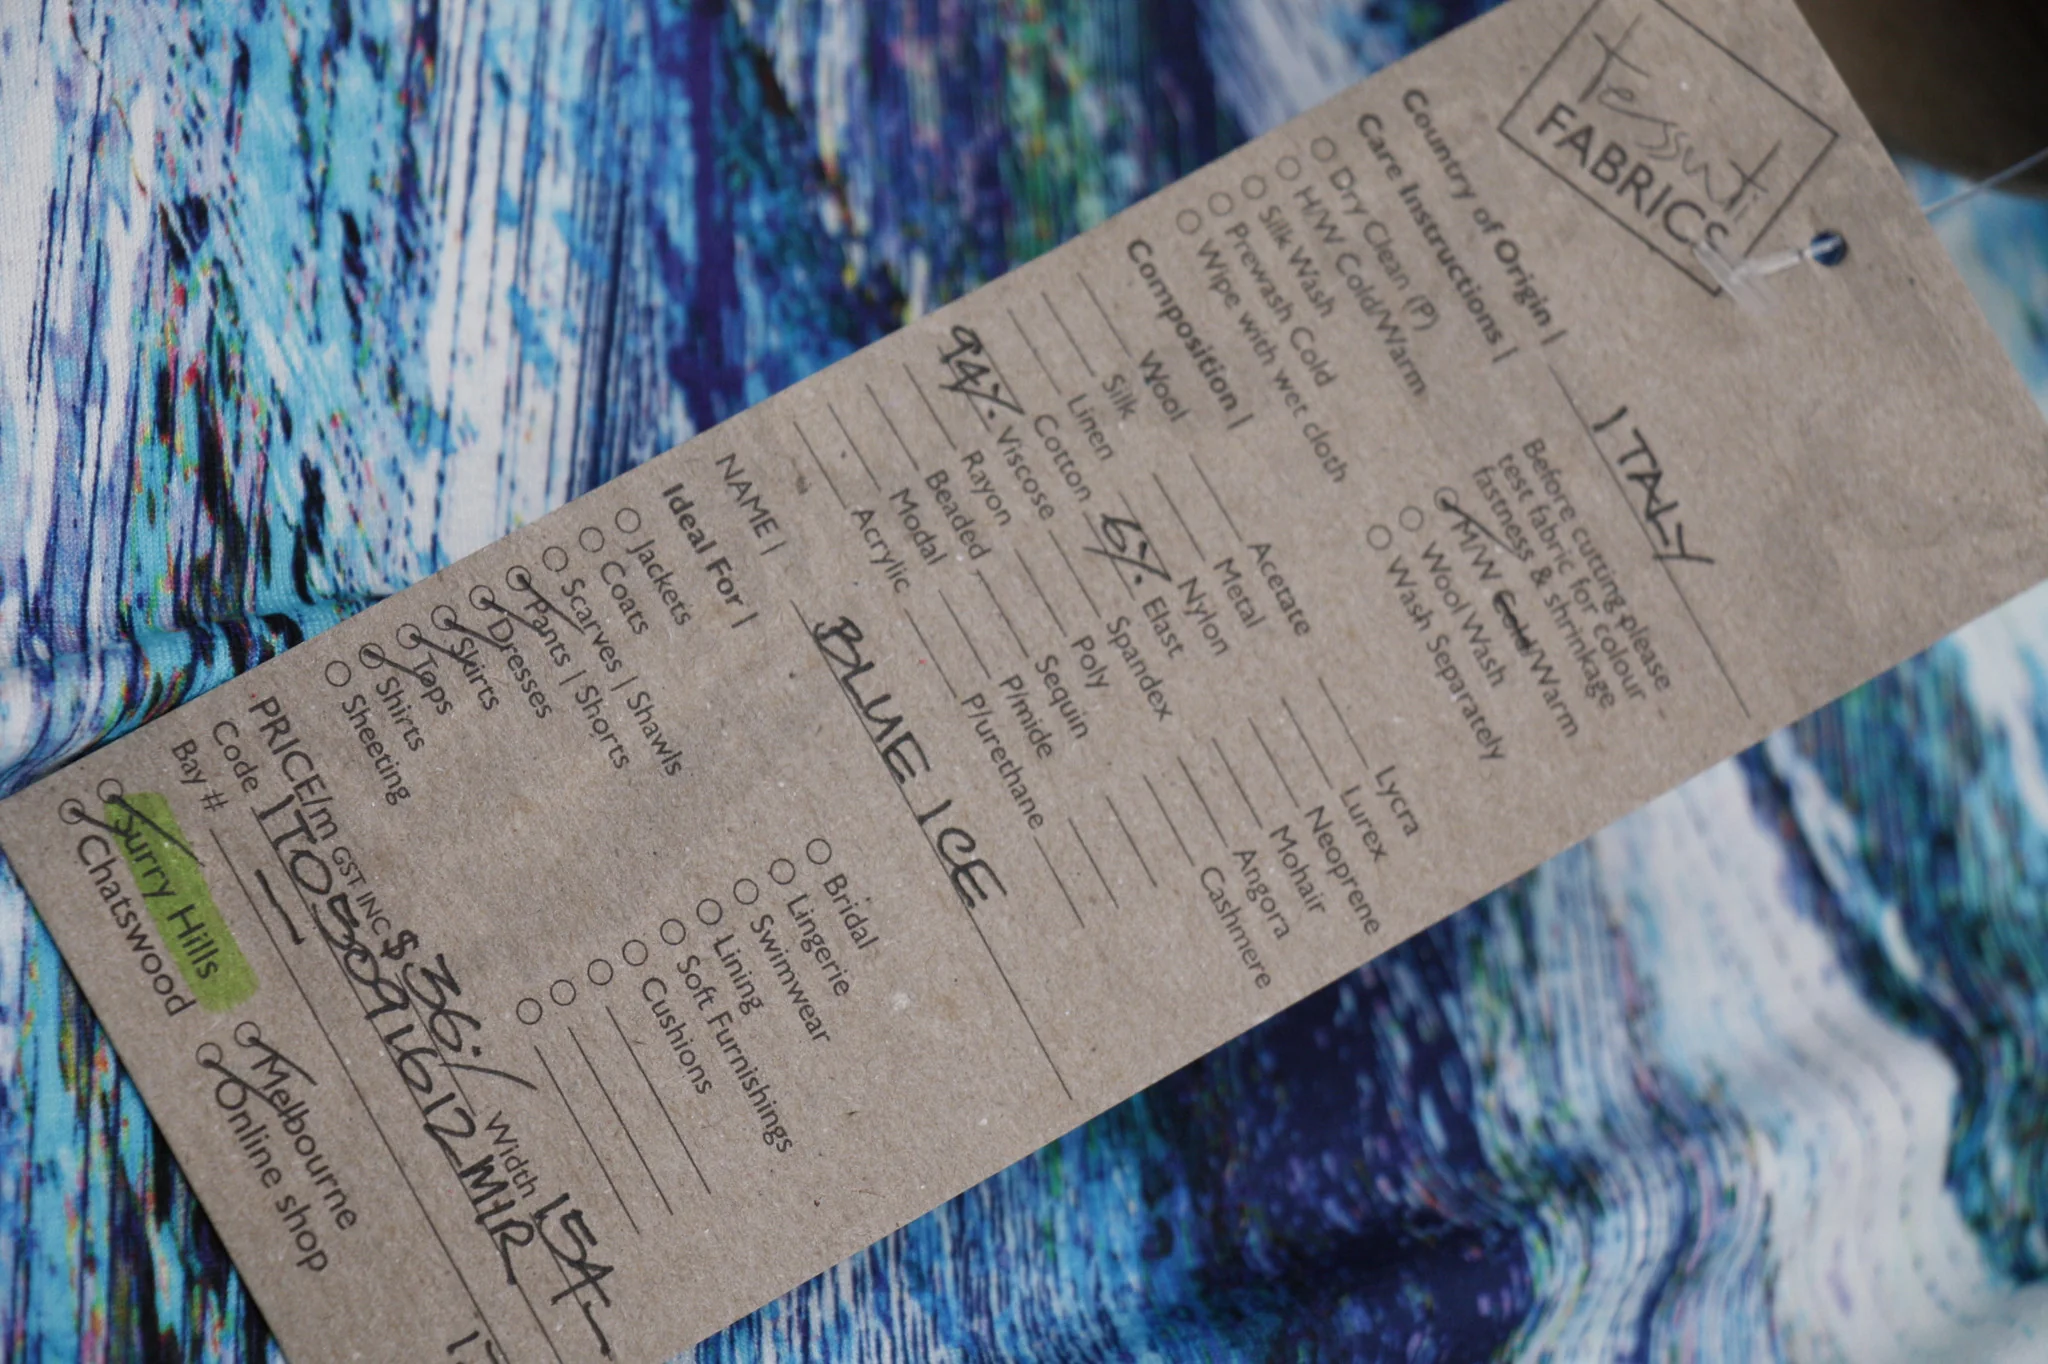 tessuti
FABRICS
Country of Origin | ITALY
Care Instructions |
Before cutting please
test fabric for colour
fastness & shrinkage
Dry Clean (P)
H/W Cold/Warm
Silk Wash
Prewash Cold
Wipe with wet cloth
M/W Cold/Warm
Wool Wash
Wash Separately
Composition |
Wool
Silk
Linen
Cotton
94% Viscose
Rayon
Beaded
Modal
Acrylic
Acetate
Metal
Nylon
6% Elast
Spandex
Poly
Sequin
P/mide
P/urethane
Lycra
Lurex
Neoprene
Mohair
Angora
Cashmere
NAME | BLUE ICE
Ideal For |
Jackets
Coats
Scarves | Shawls
Pants | Shorts
Dresses
Skirts
Tops
Shirts
Sheeting
Bridal
Lingerie
Swimwear
Lining
Soft Furnishings
Cushions
PRICE/m GST INC $36.- Width 154-
Code ITO5091612MIR
Bay # —
Surry Hills
Chatswood
Melbourne
Online shop